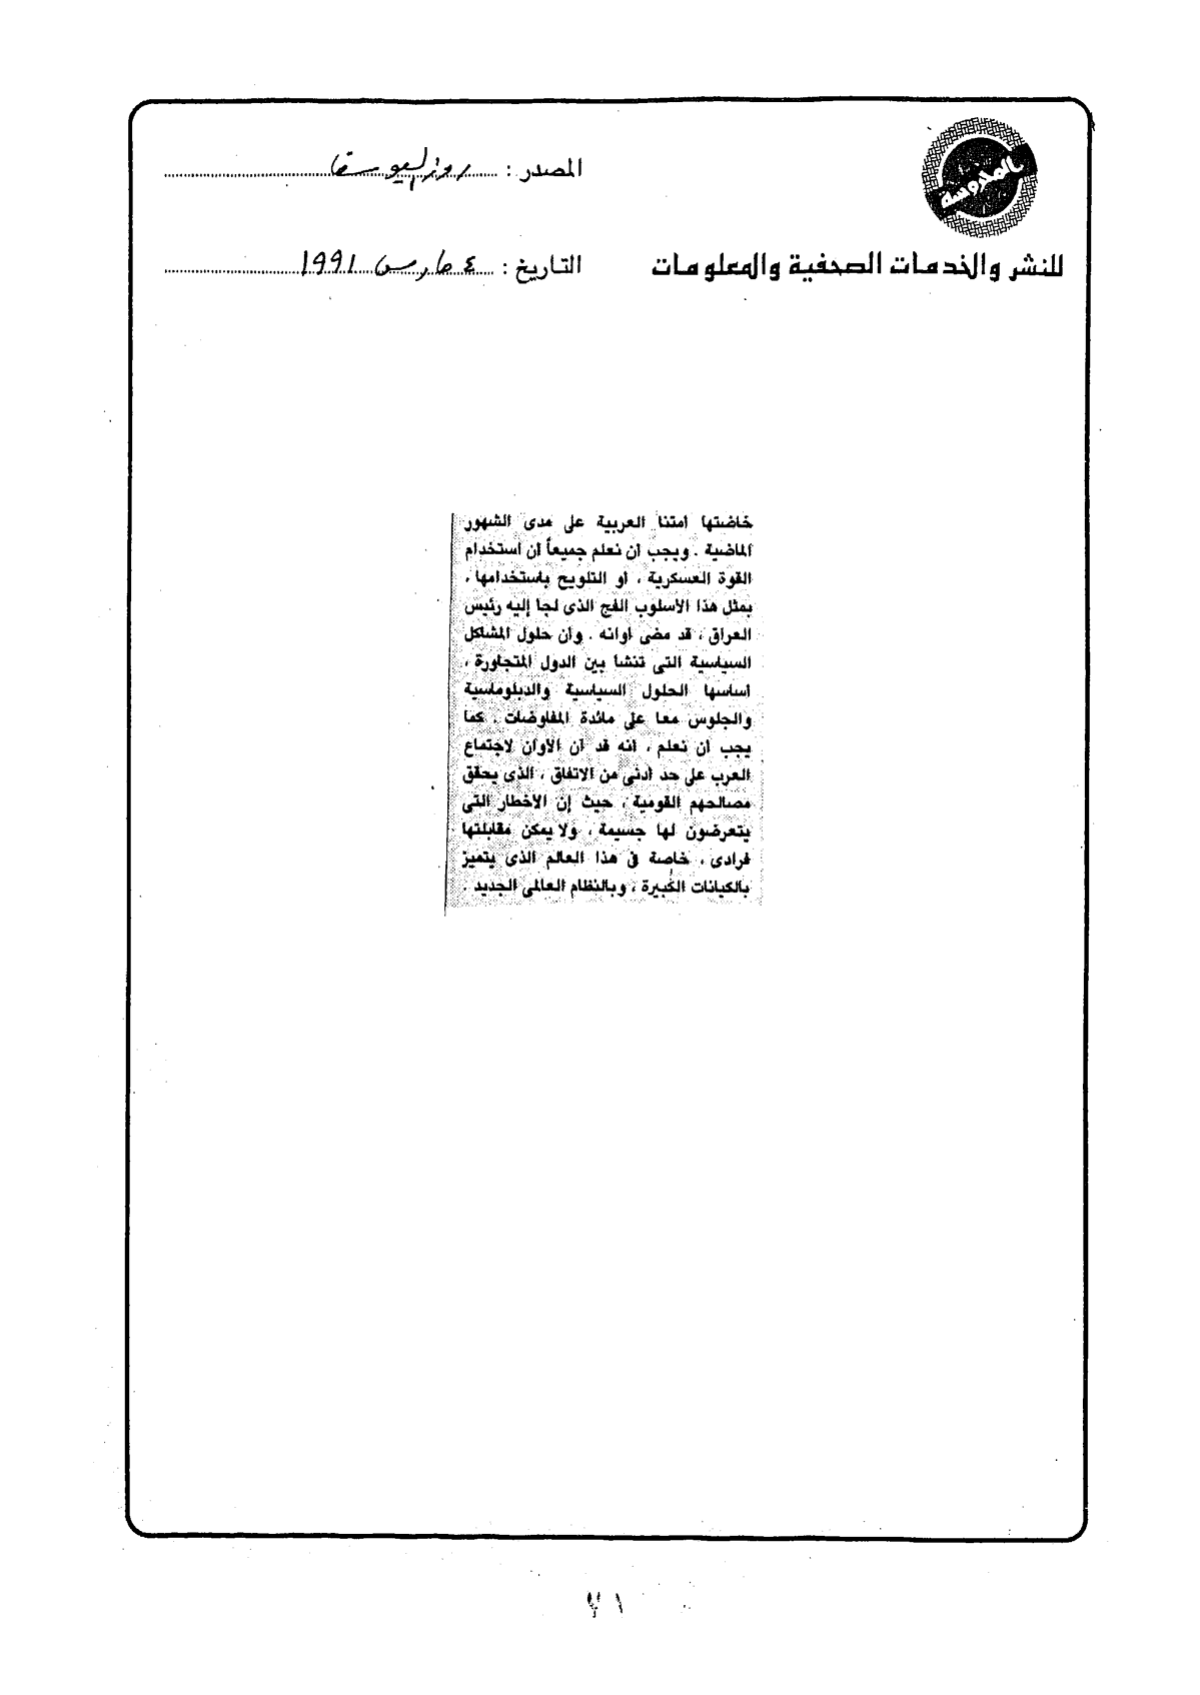 المحروسة
المصدر : روز اليوسف
للنشر والخدمات الصحفية والمعلومات
التاريخ : ٤ مارس ١٩٩١
خاضتها امتنا العربية على مدى الشهور
الماضية . ويجب ان نعلم جميعاً ان استخدام
القوة العسكرية ، او التلويح باستخدامها ،
بمثل هذا الأسلوب الفج الذى لجا إليه رئيس
العراق ، قد مضى اوانه . وان حلول المشاكل
السياسية التى تنشا بين الدول المتجاورة ،
اساسها الحلول السياسية والدبلوماسية
والجلوس معا على مائدة المفاوضات . كما
يجب ان نعلم ، انه قد ان الأوان لاجتماع
العرب على حد أدنى من الاتفاق ، الذى يحقق
مصالحهم القومية ، حيث إن الأخطار التى
يتعرضون لها جسيمة ، ولا يمكن مقابلتها
فرادى ، خاصة فى هذا العالم الذى يتميز
بالكيانات الكبيرة ، وبالنظام العالمى الجديد .